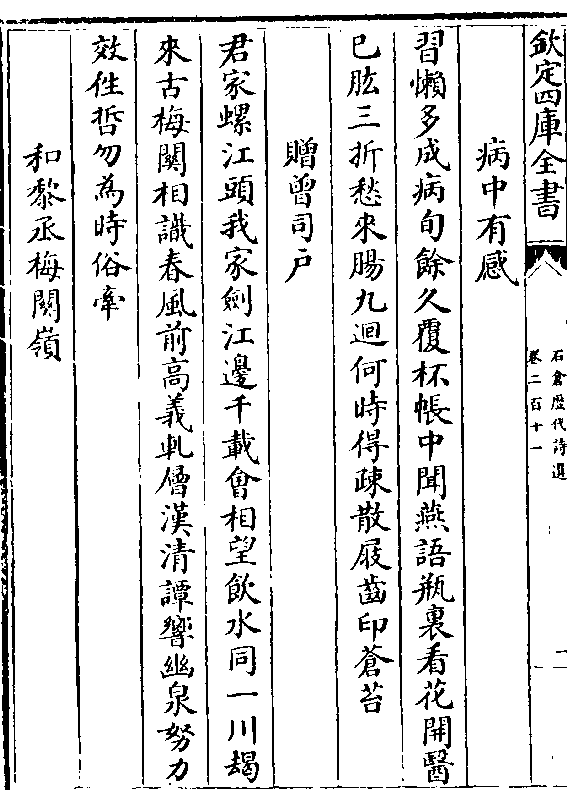 欽定四庫全書
石倉歷代詩選
卷二百十一
病中有感
習懶多成病旬餘久覆杯帳中聞燕語瓶裏看花開醫
已肱三折愁來腸九迴何時得疎散屐齒印蒼苔
贈曾司戶
君家螺江頭我家劍江邊千載會相望飲水同一川朅
來古梅關相識春風前高義軋層漢清譚響幽泉努力
效性哲勿為時俗牽
和黎丞梅關嶺